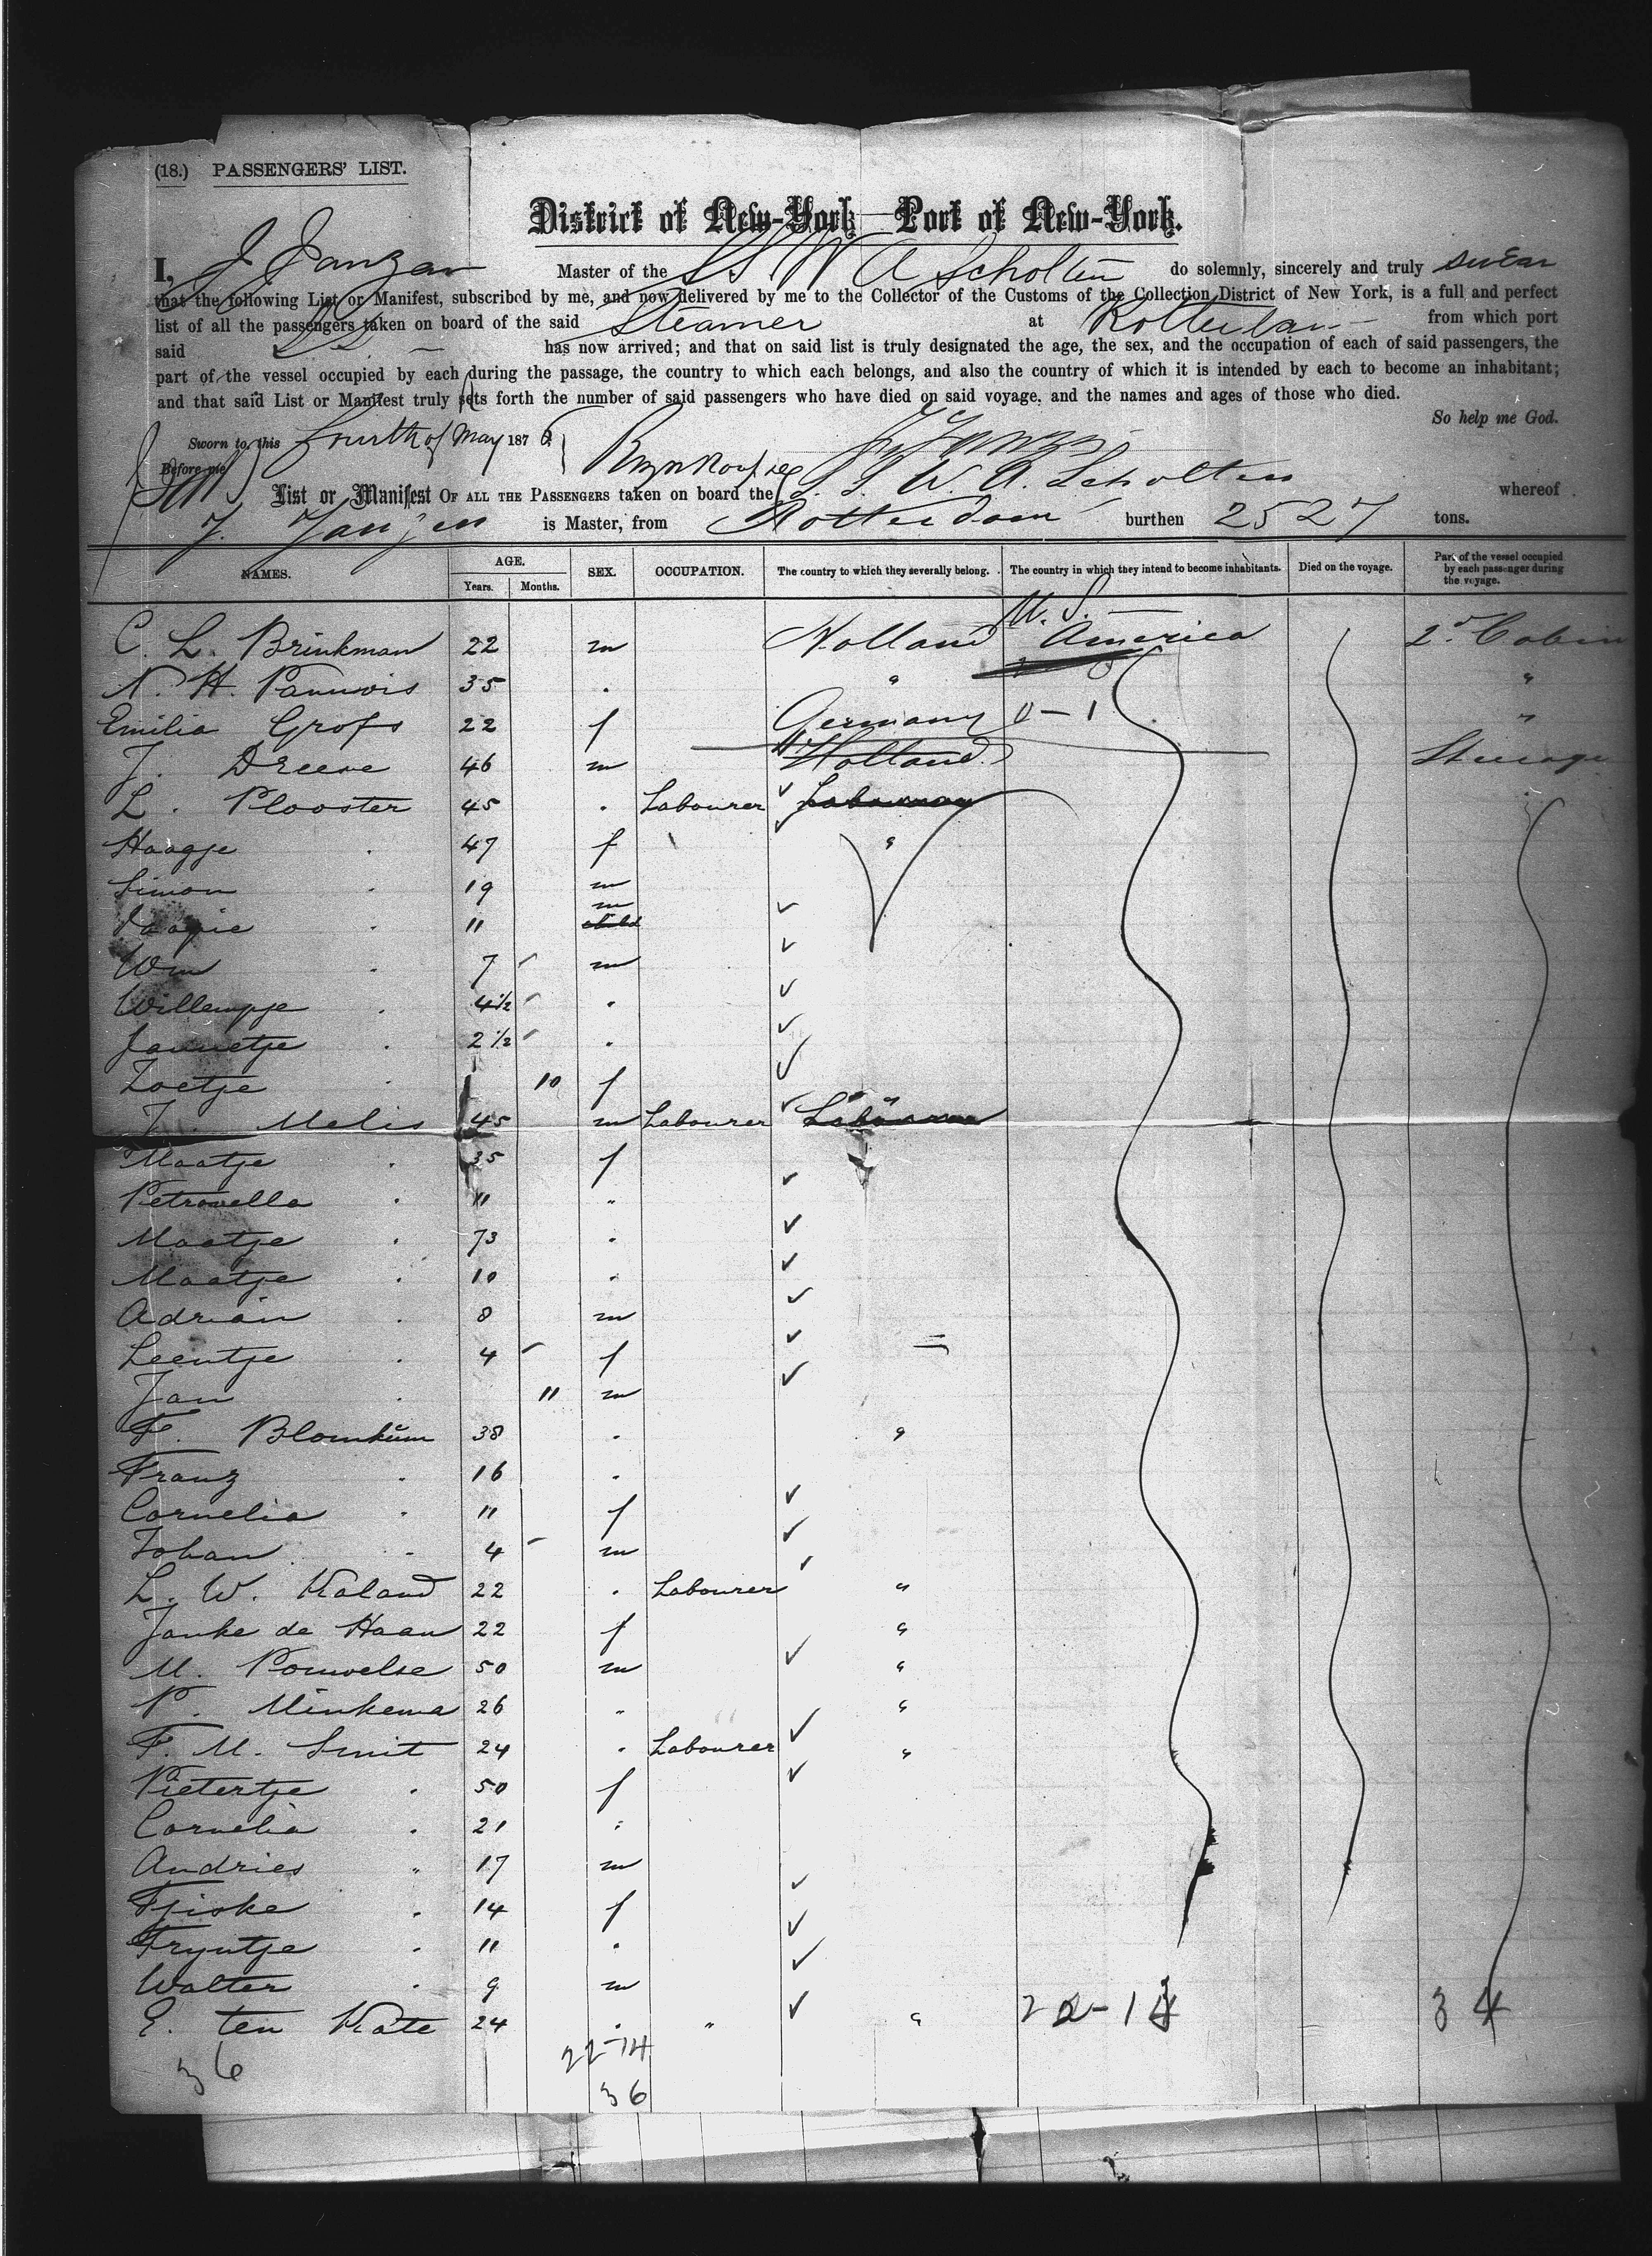 (18.) PASSENGERS' LIST.
District of New-York—Port of New-York.
I, J Janzen Master of the SS W A Scholten do solemnly, sincerely and truly swear
that the following List or Manifest, subscribed by me, and now delivered by me to the Collector of the Customs of the Collection District of New York, is a full and perfect
list of all the passengers taken on board of the said Steamer at Rotterdam from which port
said SS has now arrived; and that on said list is truly designated the age, the sex, and the occupation of each of said passengers, the
part of the vessel occupied by each during the passage, the country to which each belongs, and also the country of which it is intended by each to become an inhabitant;
and that said List or Manifest truly sets forth the number of said passengers who have died on said voyage, and the names and ages of those who died.
So help me God.
Sworn to this Fourth of May 1876
Before me
List or Manifest OF ALL THE PASSENGERS taken on board the S. S. W. A. Scholten whereof
J. Janzen is Master, from Rotterdam burthen 2527 tons.
NAMES. AGE. Years. Months. SEX. OCCUPATION. The country to which they severally belong. The country in which they intend to become inhabitants. Died on the voyage. Part of the vessel occupied by each passenger during the voyage.
U. S.
C. L. Brinkman 22 m Holland America 2d Cabin
N. H. 35 . " "
Emilia Grofs 22 f Germany 0-1 "
J. Dreese 46 m Holland Steerage
L. Plooster 45 . Labourer
Haagje . 47 f "
Simon . 19 m
m
Jaapie . 11 child
Wm . 7 m
Willempje . 4 1/2 .
Jannetje . 2 1/2 .
Zoetje . 10 f
J. Melis 45 m Labourer "
Maatje . 35 f
Petronella . 11 "
Maatje . 73 .
Maatje . 10 .
Adrian . 8 m
Leentje . 4 f
Jan . 11 m
F. Blomkum 38 . "
Franz . 16 .
Cornelia . 11 f
Johan . 4 m
L. W. Kaland 22 . Labourer "
Janke de Haan 22 f "
M. Pouwelse 50 m "
P. Minkema 26 " "
F. M. Smit 24 . Labourer "
Pietertje . 50 f
Cornelia . 21 .
Andries " 17 m
Tjiske . 14 f
Tryntje . 11 .
Walter . 9 m
E. ten Kate 24 . " " 22-14 34
36 22-14
36